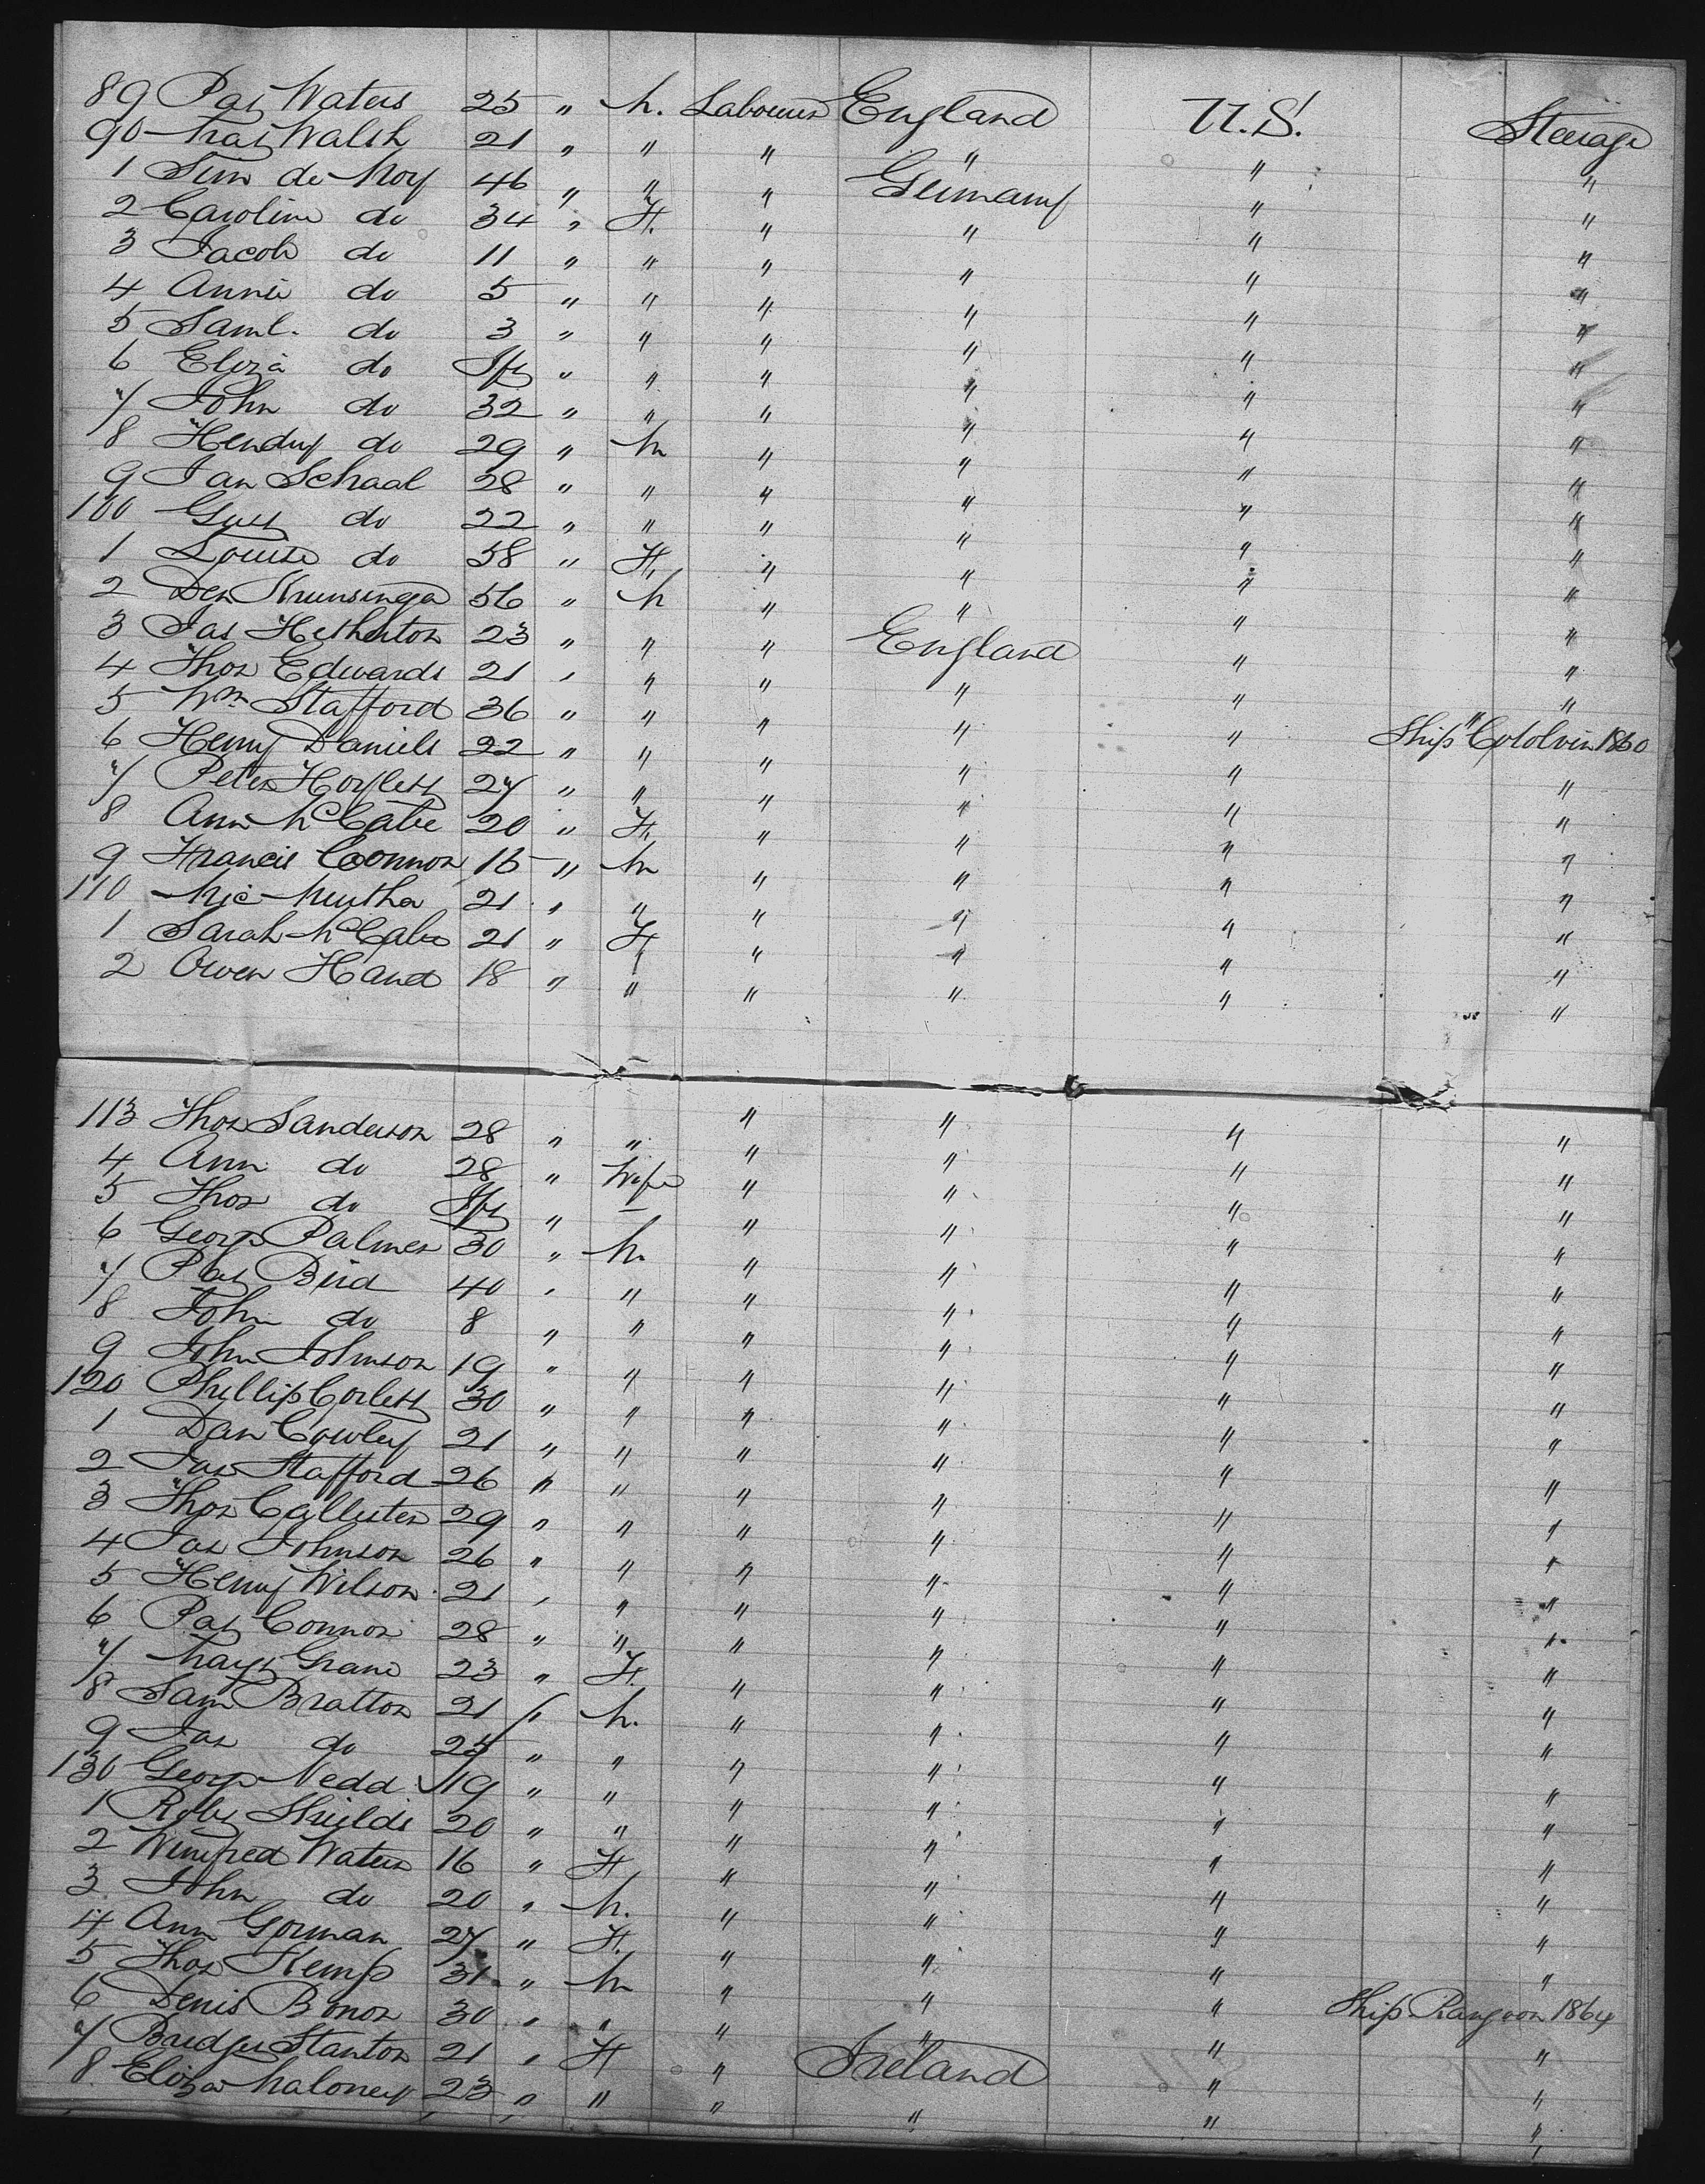 89 Pat Waters 25 " M. Labourer England U.S. Steerage
90 Walsh 21 " " " " " "
1 46 " " " Germany " "
2 Caroline do 34 " F. " " " "
3 Jacob do 11 " " " " " "
4 Annie do 5 " " " " " "
5 Saml. do 3 " " " " " "
6 Eliza do Inft " " " " " "
7 John do 32 " " " " " "
8 do 29 " M " " " "
9 Jan Schaal 28 " " " " " "
100 Gust do 22 " " " " " "
1 Louise do 58 " F. " " " "
2 56 " M " " " "
3 Jas Hetherton 23 " " " England " "
4 Thos Edwards 21 " " " " " "
5 Wm Stafford 36 " " " " " "
6 Henry Daniels 22 " " " " " Ship 1860
7 Peter 27 " " " " " "
8 Ann McCabe 20 " F. " " " "
9 Francis Connor 16 " M " " " "
110 Mic Murtha 21 " " " " " "
1 Sarah McCabe 21 " F " " " "
2 Owen Hand 18 " " " " " "
113 Thos Sanderson 28 " " " " " "
4 Ann do 28 " Wife " " " "
5 Thos do Inft " – " " " "
6 George Palmer 30 " M. " " " "
7 Pat Bird 40 " " " " " "
8 John do 8 " " " " " "
9 John Johnson 19 " " " " " "
120 Phillip Corlett 30 " " " " " "
1 Dan Cowley 21 " " " " " "
2 Jas Stafford 26 " " " " " "
3 Thos 29 " " " " " "
4 Jas Johnson 26 " " " " " "
5 Henry Wilson 21 " " " " " "
6 Pat Connor 28 " " " " " "
7 Magt 23 " F. " " " "
8 Sam Bratton 21 " M. " " " "
9 Jas do 25 " " " " " "
130 George Nedd 19 " " " " " "
1 Robt Shields 20 " " " " " "
2 Winifred Waters 16 " F " " " "
3 John do 20 " M. " " " "
4 Ann Gorman 27 " F. " " " "
5 Thos Kemp 31 " M " " " "
6 Denis 30 " " " " " Ship Rangoon 1864
7 Bridget Stanton 21 " F " Ireland " "
8 Eliza Maloney 23 " " " " " "